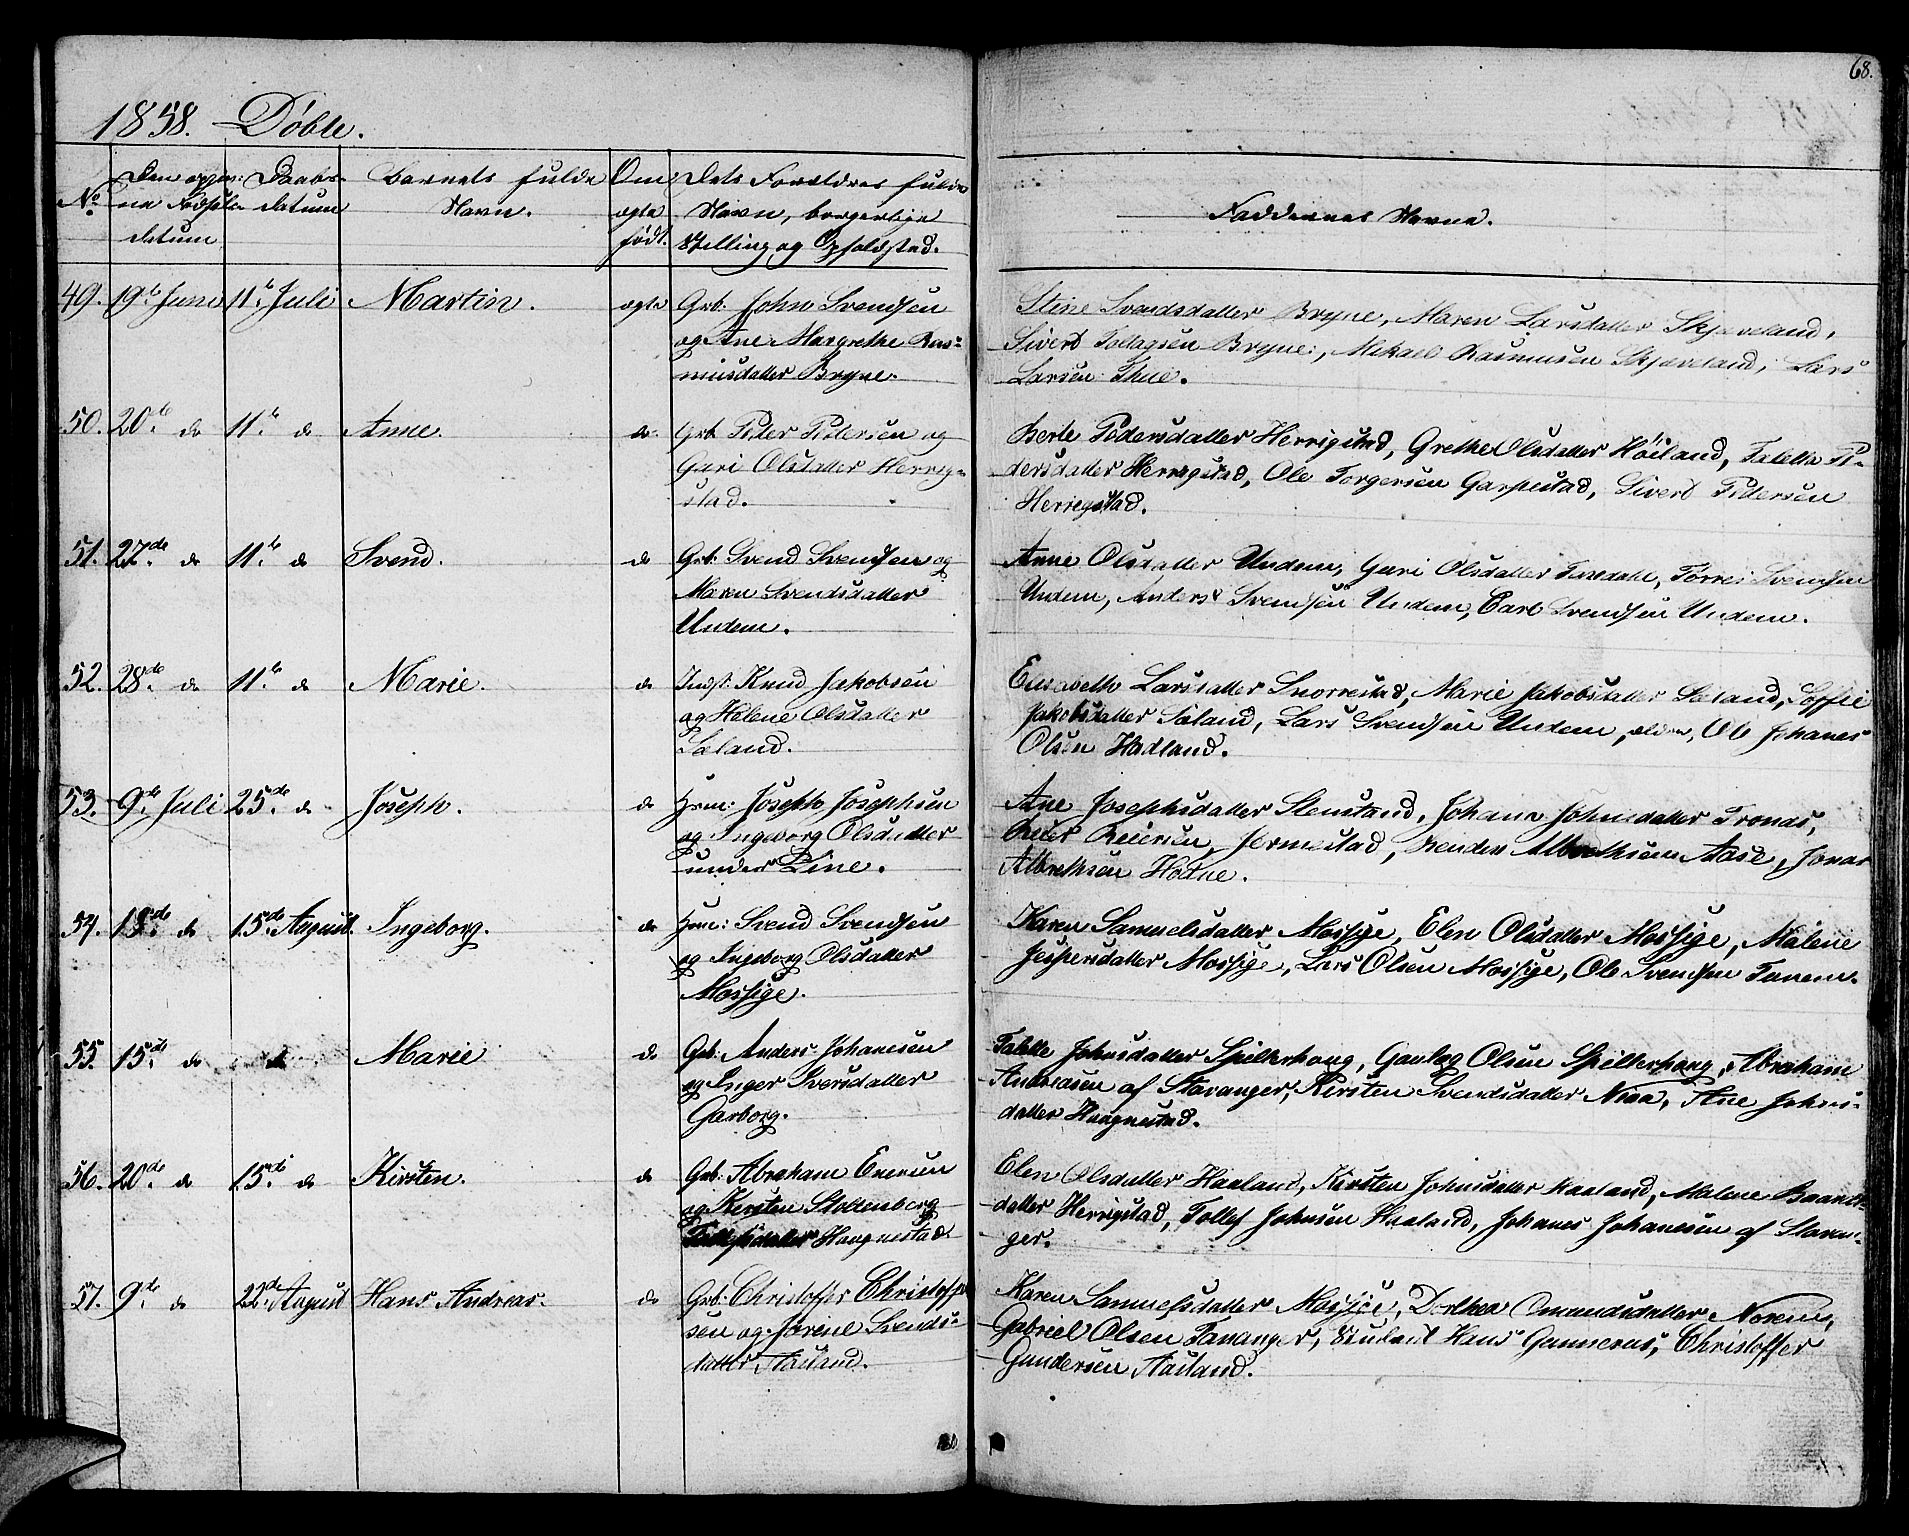 68.
1858. Døbte.
No.
Den opgivne Fødsels datum
Daabs-datum
Barnets fulde Navn.
Om ægte født.
Dets Forældres fulde Navn, borgerlige Stilling og Opholdsted.
Faddernes Navne.
49. 19de Juni 11te Juli Martin. ægte Grb. John Svendsen
og Ane Margrethe Ras-
musdatter Bryne.
Stine Svendsdatter Bryne, Maren Larsdatter Skjæveland,
Siverd Tollagsen Bryne, Mikael Rasmusen Skjæveland, Lars
Larsen Thue.
50. 20de do 11te do Anne. do Grb. Peder Pedersen og
Guri Olsdatter Herreg-
stad.
Berte Pedersdatter Herrigstad, Grethe Olsdatter Höiland, Talette Pe-
dersdatter Herregstad, Ole Torgersen Garpestad, Siverd Pedersen
Herregstad.
51. 27de do 11te do Svend. do Grb. Svend Svendsen og
Maren Svendsdatter
Undem.
Anne Olsdatter Undem, Guri Olsdatter Taxedahl, Torres Svendsen
Undem, Anders Svendsen Undem, Carl Svendsen Undem.
52. 28de do 11te do Marie. do Indst. Knud Jakobsen
og Helene Olsdatter
Sæland.
Elisabeth Larsdatter Snorrestad, Marie Jakobsdatter Sæland, Soffie
Jakobsdatter Sæland, Lars Svendsen Undem, ældre, Ole Johanes
Olsen Hadland.
53. 9de Juli 25de do Joseph. do Hrm: Joseph Josephsen
og Ingeborg Olsdatter
under Line.
Ane Josephsdatter Stenstand, Johane Johnsdatter Tronæs,
Reier Reiersen, Jermestad, Albrethsen Aase, Jonas
Albrethsen Hodne.
54. 13de do 15de August. Ingeborg. do Hrm: Svend Svendsen
og Ingeborg Olsdatter
Mossige.
Karen Samuelsdatter Mossige, Elen Olsdatter Mossige, Malene
Jespersdatter Mossige, Lars Olsen Mossige, Ole Svendsen Tanem.
55. 15de do do Marie do Grb: Anders Johanesen
og Inger Iversdatter
Garborg.
Talette Johnsdatter Spilterhoug, Gaulag Olsen Spilterhoug, Abraham
Andreasen af Stavanger, Kirsten Svendsdatter Niaa, Ane Johns-
datter Haugnestad.
56. 20de do 15de do Kirsten. do Grb: Abraham Enersen
og Kirsten Stoltenberg
Tollefsdatter Haugnestad
Elen Olsdatter Haaland, Kirsten Johnsdatter Haaland, Malene Baards-
datter Herrigstad, Tollef Johnsen Haaland, Johanes Johanesen af Stavan-
ger.
57. 9de do 22de August Hans Andreas. do Grb: Christoffer Christoffer
sen og Jorine Svends-
datter Aasland.
Karen Samuelsdatter Mossige, Dorthea Omundsdatter Norem,
Gabriel Olsen Tananger, Student Hans Gunnerus, Christoffer
Gundersen Aasland.